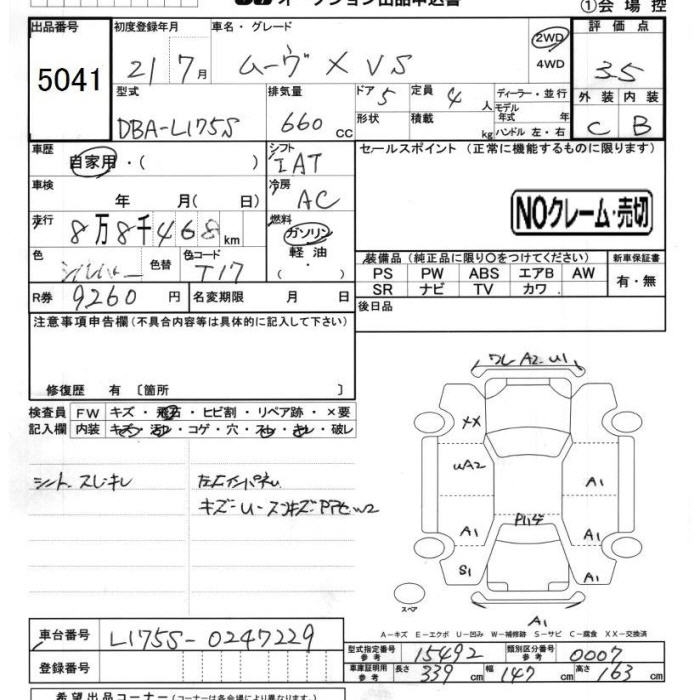 オークション出品申込書
①会場控
出品番号 5041
初度登録年月 21 7月
車名・グレード ムーヴ X VS
2WD
4WD
評価点 3.5
外装 C 内装 B
型式 DBA-L175S
排気量 660 cc
ドア 5
形状
定員 4 人
積載 kg
ディーラー・並行
モデル年式 年
ハンドル 左・右
車歴 自家用・( )
シフト IAT
セールスポイント (正常に機能するものに限ります)
車検 年 月( 日)
冷房 AC
NOクレーム・売切
走行 8万8千468km
燃料 ガソリン
軽油
( ・ )
色 シルバー 色替 色コード T17
装備品 (純正品に限り○をつけてください)
新車保証書
有・無
PS PW ABS エアB AW
SR ナビ TV カワ
R券 9260円
名変期限 月 日
後日品
注意事項申告欄 (不具合内容等は具体的に記入して下さい)
修復歴 有 〔箇所 〕
検査員記入欄
FW キズ・飛石・ヒビ割・リペア跡・×要
内装 キズ・汚れ・コゲ・穴・スレ・キレ・破レ
シート スレ キレ
ワレ A2 U1
XX
UA2
A1
A1
A1
A1
S1
A1
A1
スペア
A−キズ E−エクボ U−凹み W−補修跡 S−サビ C−腐食 XX−交換済
車台番号 L175S-0247229
登録番号
型式指定番号 参考 15492
類別区分番号 参考 0007
車庫証明用 参考 長さ 339cm 幅 147cm 高さ 163cm
希望出品コーナー (コーナーは各会場により異なります)